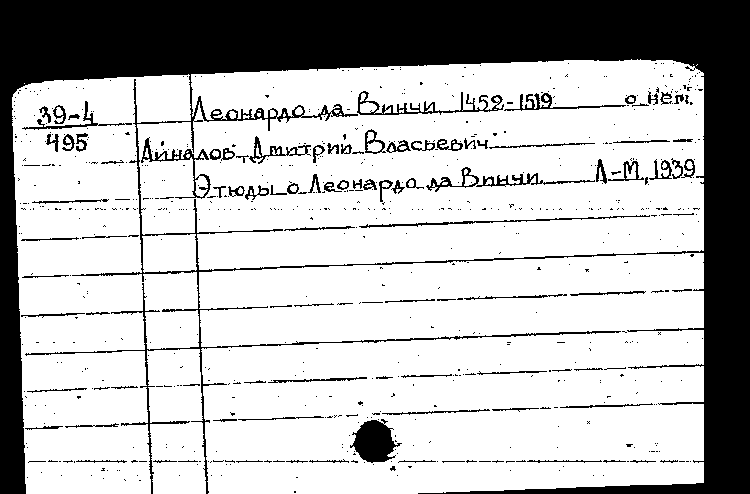 39-4 Леонардо да Винчи 1452-1519 о нем.
495 Айналов, Дмитрий Власьевич
Этюды о Леонардо да Винчи. Л-М, 1939